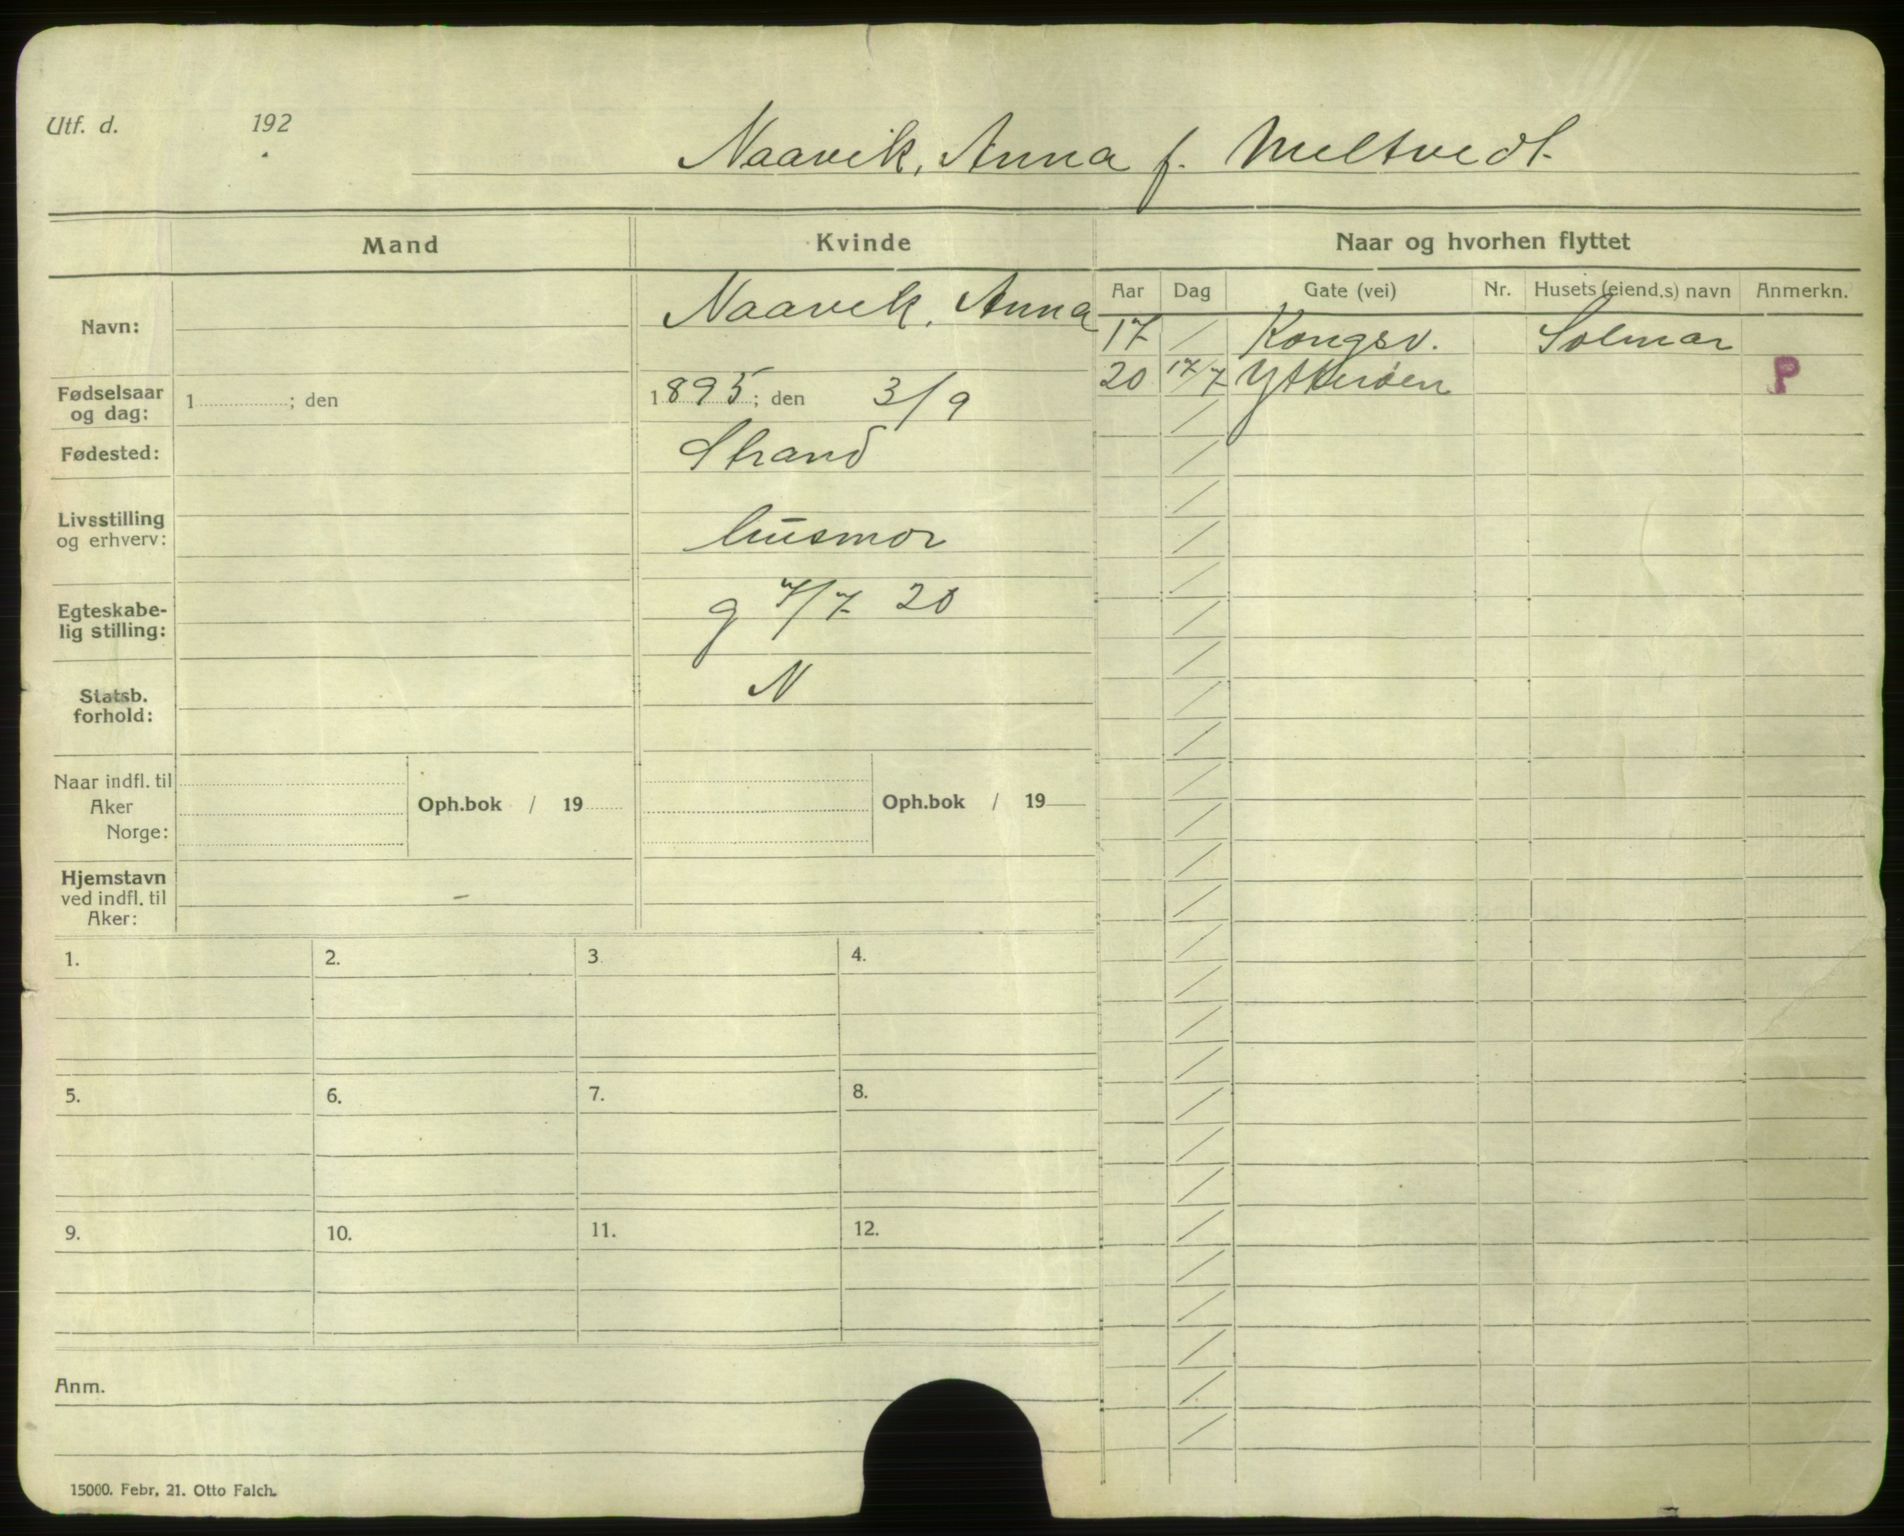 Utf. d. 192
Naavik, Anna f. Meltvedt.
Mand
Kvinde
Naar og hvorhen flyttet
Navn:
Naavik, Anna
Fødselsaar
og dag:
1 ; den
1895; den 3/9
Fødested:
Strand
Livsstilling
og erhverv:
husmor
Egteskabe-
lig stilling:
g 7/7 20
Statsb.
forhold:
N
Naar indfl. til
Aker
Norge:
Oph.bok / 19
Oph.bok / 19
Hjemstavn
ved indfl. til
Aker:
Aar Dag Gate (vei) Nr. Husets (eiend.s) navn Anmerkn.
17 / Kongsv. Solmar
20 17/7 Ytterøen P
1. 2. 3. 4.
5. 6. 7. 8.
9. 10. 11. 12.
Anm.
15000. Febr. 21. Otto Falch.